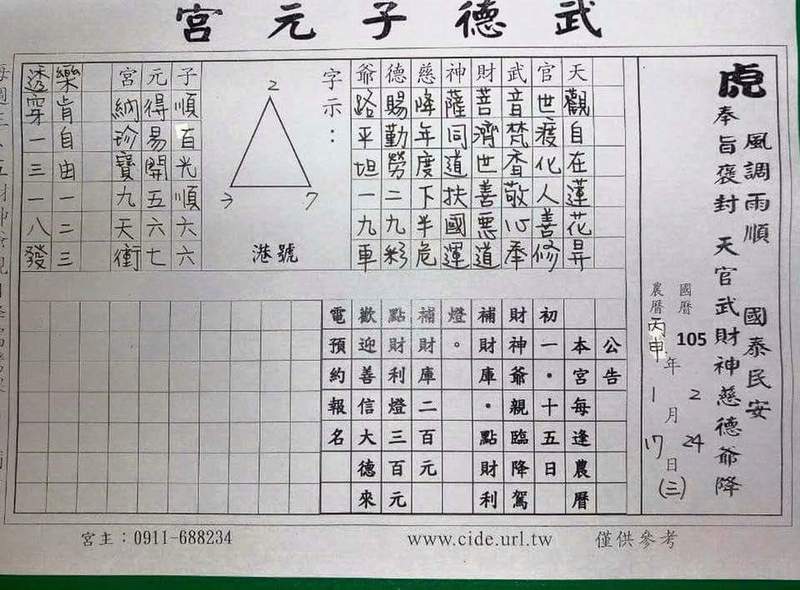 武德子元宮
虎
風調雨順 國泰民安
奉旨褒封 天官武財神慈德爺降
國曆 105 年 2 月 24 日 (三)
農曆 丙申 年 1 月 17 日
天觀自在蓮花昇
官世疫化人善修
武音梵香敬心奉
財菩濟世善惡道
神薩同道扶國運
慈降年度下半危
德賜勤勞二九彩
爺路平坦一九車
字示：
2
7
港號
子順百光順六六
元得易開五六七
宮納珍寶九天衝
樂肯自由一二三
透穿一三一八發
公告
本宮每逢農曆
初一．十五日
財神爺親臨降駕
補財庫．點財利
燈。
補財庫二百元
點財利燈三百元
歡迎善信大德來
電預約報名
宮主：0911-688234
www.cide.url.tw
僅供參考